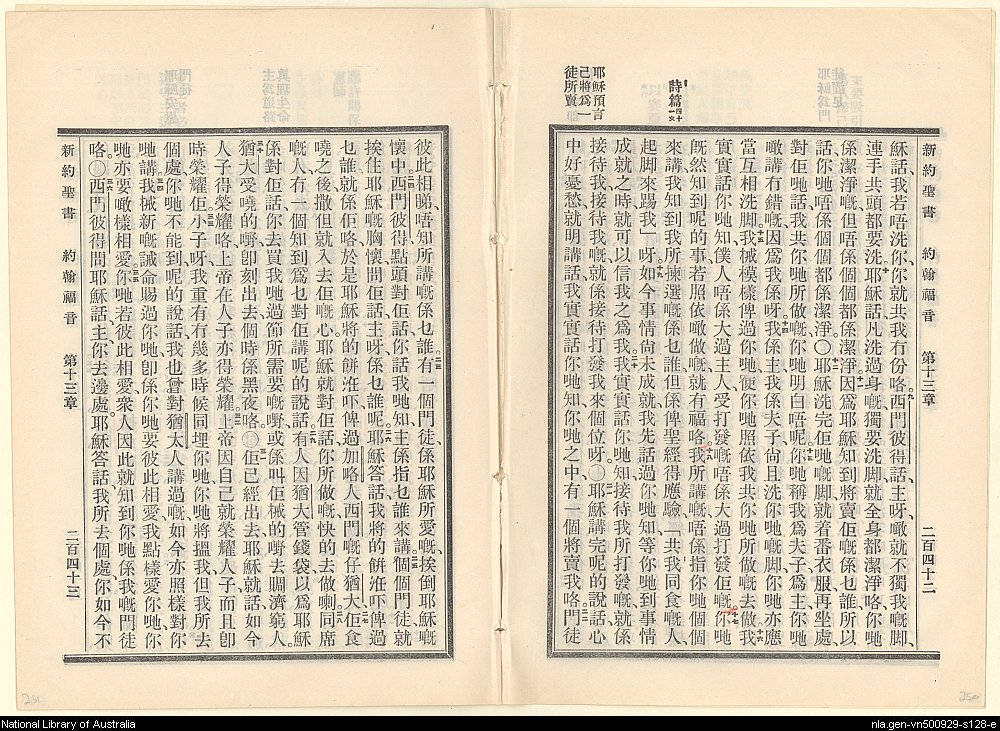 新約聖書 約翰福音 第十三章 二百四十二
穌話我若唔洗你你就共我有份咯西門彼得話主呀噉就不獨我嘅脚
連手共頭都要洗耶穌話凡洗過身嘅獨要洗脚就全身都潔淨咯你哋
係潔淨嘅但唔係個個都係潔淨因爲耶穌知到將賣佢嘅係乜誰所以
話你哋唔係個個都係潔淨〇耶穌洗完佢哋嘅脚就着番衣服再坐處
對佢哋話我共你哋所做嘅你哋明白唔呢你哋稱我爲夫子爲主你哋
噉講有錯嘅因爲我係呀我係主我係夫子尚且洗你哋嘅脚你哋亦應
當互相洗脚我械模樣俾過你哋使你哋照依我共你哋所做嘅去做我
實實話你哋知僕人唔係大過主人受打發嘅唔係大過打發佢嘅你哋
旣然知到呢的事若照依噉做嘅就有福咯我所講嘅唔係指你哋個個
來講我知到我所揀選嘅係乜誰但係俾聖經得應驗「共我同食嘅人
起脚來踢我」呀如今事情尚未成就我先話過你哋知等你哋到事情
成就之時就可以信我之爲我我實實話你哋知接待我所打發嘅就係
接待我接待我嘅就係接待打發我來個位呀〇耶穌講完呢的說話心
中好憂愁就明講話我實實話你哋知你哋之中有一個將賣我咯門徒
詩篇四十一
耶穌預言
己將爲一
徒所賣
彼此相睇唔知所講嘅係乜誰有一個門徒係耶穌所愛嘅挨倒耶穌嘅
懷中西門彼得點頭對佢話你話我哋知主係指乜誰來講個個門徒就
挨住耶穌嘅胸懷問佢話主呀係乜誰呢耶穌答話我將的餅湴吓俾過
乜誰就係佢咯於是耶穌將的餅湴吓俾過加咯人西門嘅仔猶大佢食
曉之後撒但就入去佢嘅心耶穌就對佢話你所做嘅快的去做喇同席
嘅人有一個知到爲乜對佢講呢的說話有人因猶大管錢袋以爲耶穌
係對佢話你去買我哋過節所需要嘅嘢或係叫佢械的嘢去賙濟窮人
猶大受曉的嘢卽刻出去個時係黑夜咯〇佢已經出去耶穌就話如今
人子得榮耀咯上帝在人子亦得榮耀上帝因自己就榮耀人子而且卽
時榮耀佢小子呀我重有有幾多時候同埋你哋你哋將搵我但我所去
個處你哋不能到呢的說話我也曾對猶太人講過嘅如今亦照樣對你
哋講我械新嘅誡命賜過你哋卽係你哋要彼此相愛我點樣愛你哋你
哋亦要噉樣相愛你哋若彼此相愛衆人因此就知到你哋係我嘅門徒
咯〇西門彼得問耶穌話主你去邊處耶穌答話我所去個處你如今不
新約聖書 約翰福音 第十三章 二百四十三
251
250
National Library of Australia
nla.gen-vn500929-s128-e